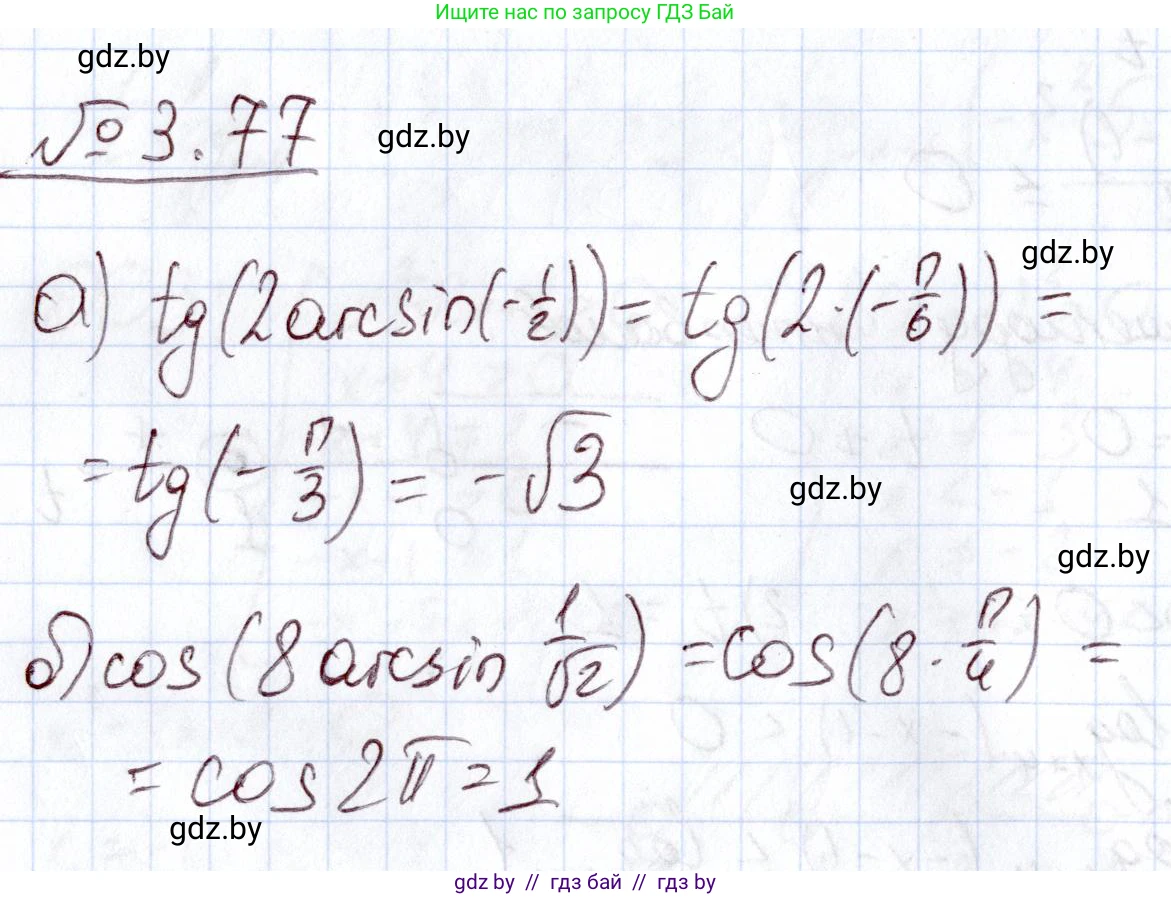 Ищите нас по запросу ГДЗ Бай
gdz.by
№ 3.77
gdz.by
gdz.by
а) tg(2arcsin(-1/2)) = tg(2·(-π/6)) =
= tg(-π/3) = -√3
gdz.by
gdz.by
б) cos(8 arcsin 1/√2) = cos(8·π/4) =
= cos 2π = 1
gdz.by
gdz by // гдз бай // гдз by